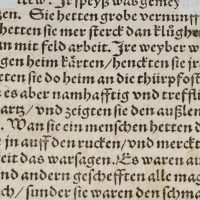 ttw. Ir speyß was gemey
zen. Sie hetten grobe vernunff
hetten sie mer sterck dan klůghe
an mit feld arbeit. Jre weyber w
gen heim kårten/ hencktten sie jr
eten sie do heim an die thürpfost
es aber namhafftig vnd trefflic
artz/ vnd zeigten sie den außlen
. Wan sie ein menschen hetten
in auff den rucken/ vnd merckt
eit das warsagen. Es waren au
nd andern geschefften alle ma
ch/ sunder sie waren den schma